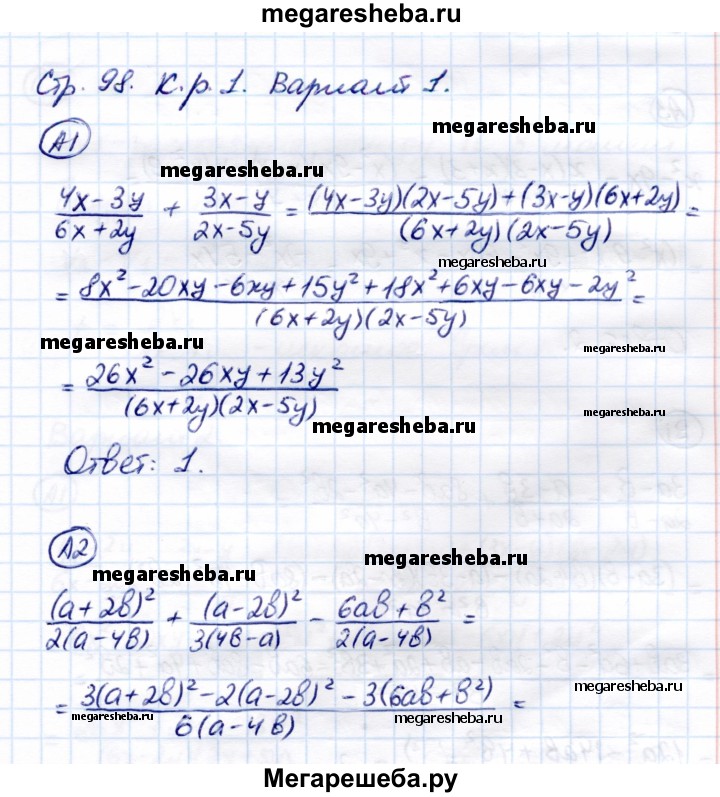 megaresheba.ru
Стр. 98. К.р. 1. Вариант 1.
megaresheba.ru
А1
megaresheba.ru
(4x-3y)/(6x+2y) + (3x-y)/(2x-5y) = ((4x-3y)(2x-5y)+(3x-y)(6x+2y))/((6x+2y)(2x-5y)) =
megaresheba.ru
= (8x²-20xy-6xy+15y²+18x²+6xy-6xy-2y²)/((6x+2y)(2x-5y)) =
megaresheba.ru
megaresheba.ru
= (26x²-26xy+13y²)/((6x+2y)(2x-5y))
megaresheba.ru
megaresheba.ru
Ответ: 1.
А2
megaresheba.ru
megaresheba.ru
(a+2в)²/(2(a-4в)) + (a-2в)²/(3(4в-a)) - (6aв+в²)/(2(a-4в)) =
megaresheba.ru
= (3(a+2в)²-2(a-2в)²-3(6aв+в²))/(6(a-4в)) =
megaresheba.ru
megaresheba.ru
Мегарешеба.ру